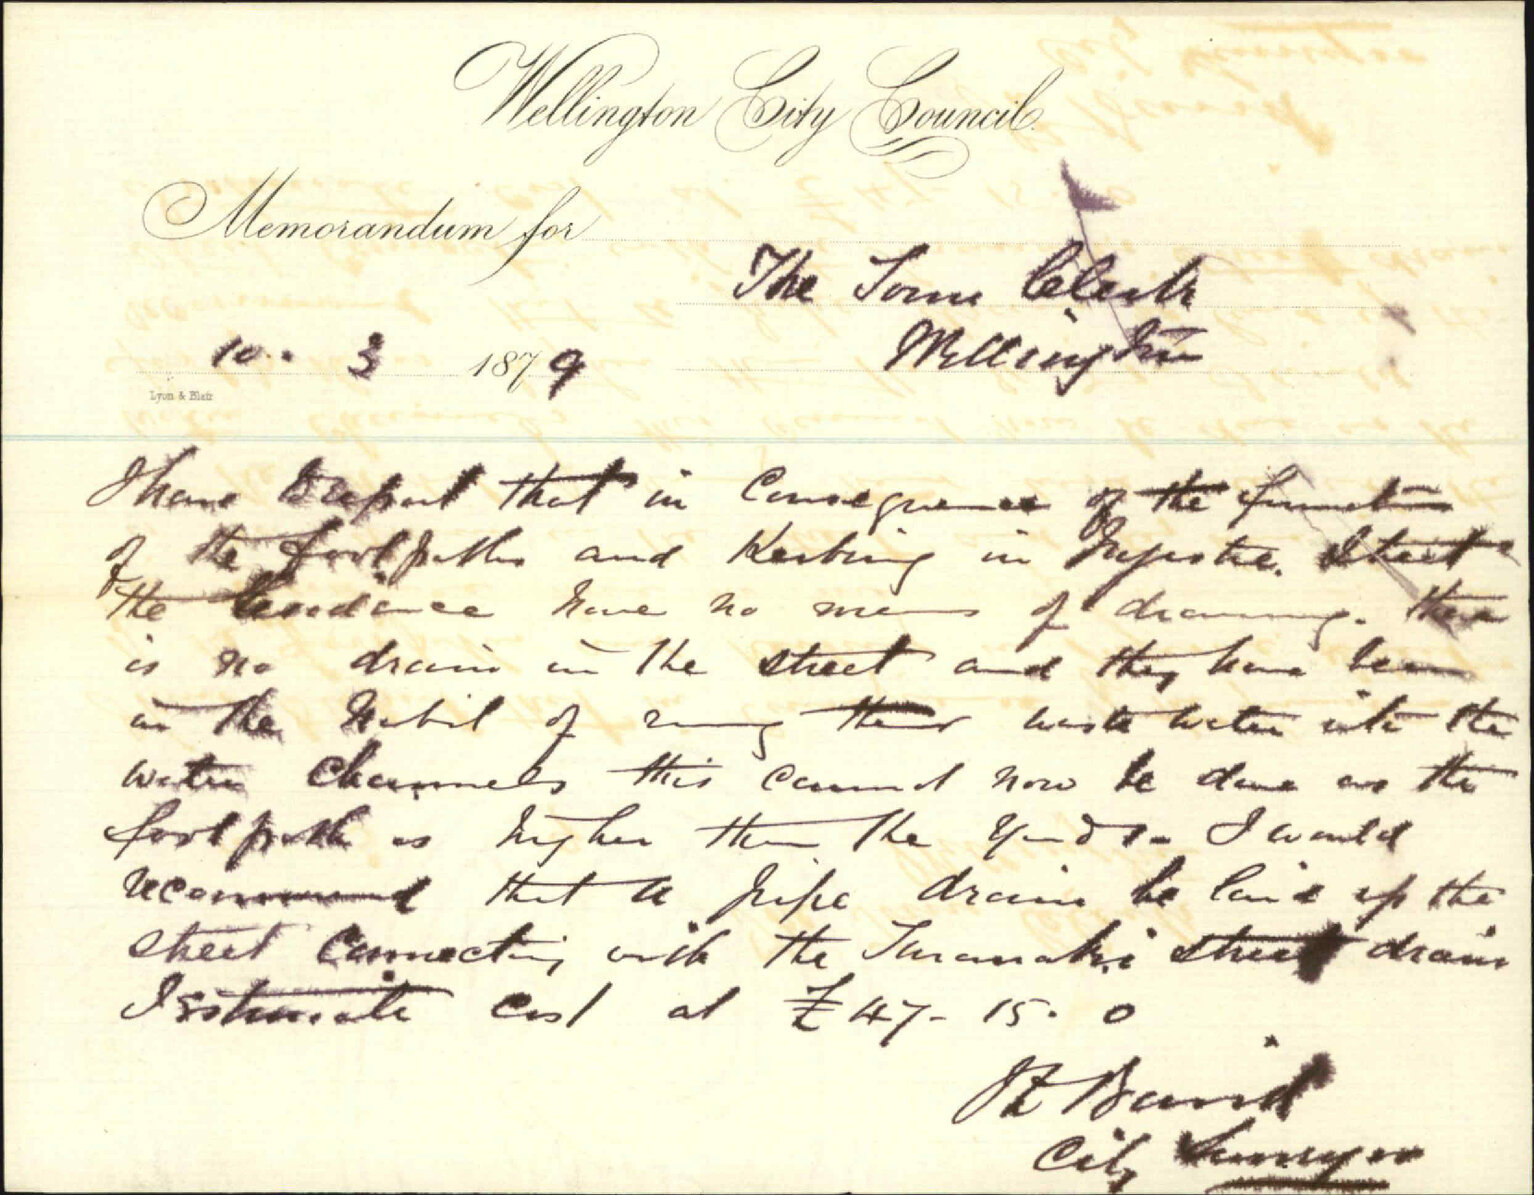 Wellington City Council.
Memorandum for
The Town Clerk
Wellington
10. 3 1879
Lyon & Blair
I have to report that in Consequence of the formation
of the footpaths and Kerbing in Street
the have no means of draining. there
is no drain in the street and they have been
in the habit of runing their waste water into the
water Channels this cannot now be done as the
footpath is higher than the Yards - I would
recommend that a pipe drain be laid up the
street Connecting with the Taranaki street drain
I Estimate cost at £47-15.0
Baird
City Surveyor